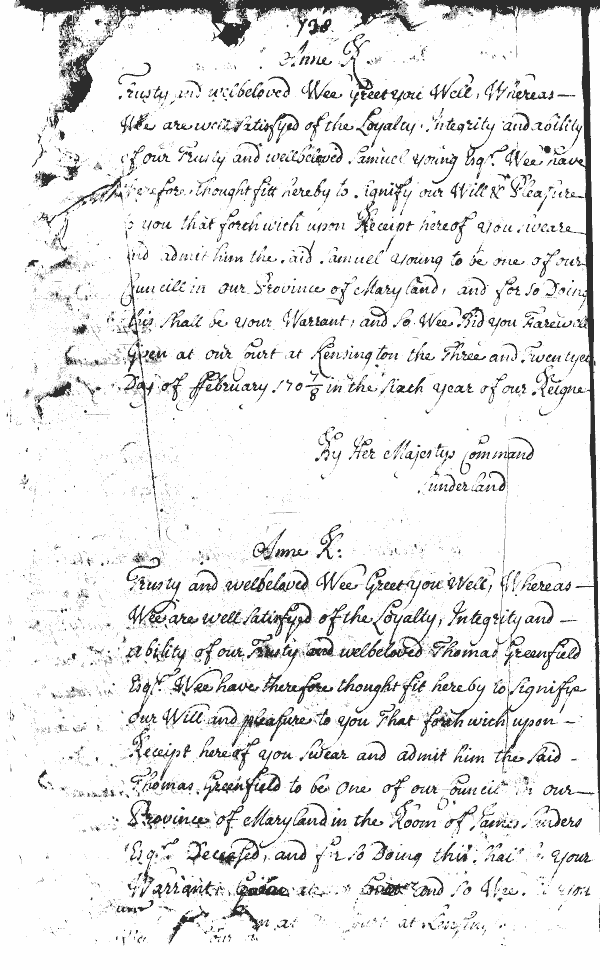 138
Anne R
Trusty and welbeloved Wee Greet you Well, Whereas —
Wee are well satisfyed of the Loyalty, Integrity and ability
of our Trusty and wellbeloved Samuel Young Esqr. Wee have
therefore thought fitt hereby to signify our Will & Pleasure
to you that forthwith upon Receipt hereof you sweare
and admit him the said Samuel Young to be one of our
Councill in our Province of Maryland, and for so Doing
this shall be your Warrant, and so Wee Bid you Farewell
Given at our Court at Kensington the Three and Twentyeth
Day of ffebruary 170 7/8 in the sixth year of our Reigne
By Her Majestys Command
Sunderland
Anne R:
Trusty and welbeloved Wee Greet you Well, Whereas —
Wee are well satisfyed of the Loyalty, Integrity and —
ability of our Trusty and welbeloved Thomas Greenfield
Esqr. Wee have therefore thought fit hereby to signifye
our Will and pleasure to you That forthwith upon —
Receipt hereof you swear and admit him the said -
Thomas Greenfield to be one of our Council in our —
Province of Maryland in the Room of James Sanders
Esqr. Deceased, and for so Doing this shall be your
Warrant and so Wee you
at Court at